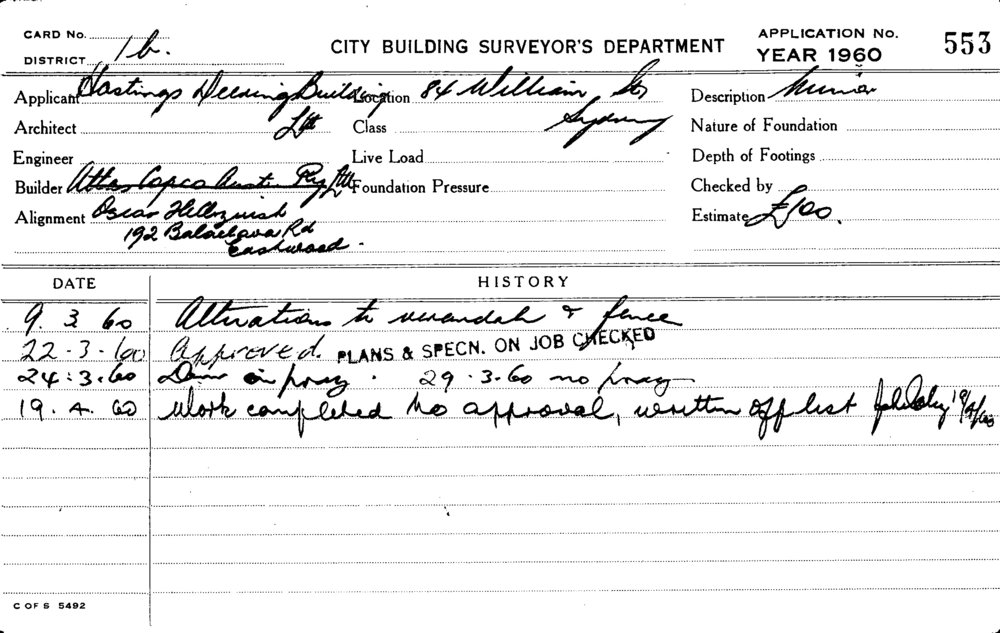 CARD No.
DISTRICT 1b.
CITY BUILDING SURVEYOR'S DEPARTMENT
APPLICATION No. 553
YEAR 1960
Applicant Hastings Deering Building Location 84 William St, Description Minor
Architect Ltd Class Sydney Nature of Foundation
Engineer Live Load Depth of Footings
Builder Atlas Copco Austn Pty Ltd Foundation Pressure Checked by
Alignment Oscar Hellquish Estimate £100.
192 Balaclava Rd
Eastwood.
DATE HISTORY
9. 3 60 Alterations to verandah & fence
22-3-60 Approved. PLANS & SPECN. ON JOB CHECKED
24:3.60 Dem in prog. 29.3.60 no prog
19. 4. 60 Work completed no approval, written off list 19/4/60
C OF S 5492